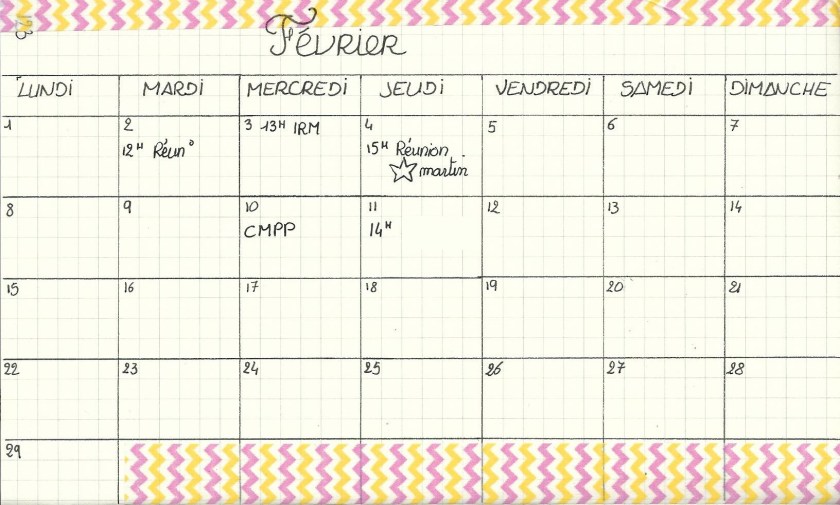 Février
LUNDI MARDI MERCREDI JEUDI VENDREDI SAMEDI DIMANCHE
1 2 3 13H IRM 4 5 6 7
12H Réun° 15H Réunion
martin
8 9 10 11 12 13 14
CMPP 14H
15 16 17 18 19 20 21
22 23 24 25 26 27 28
29